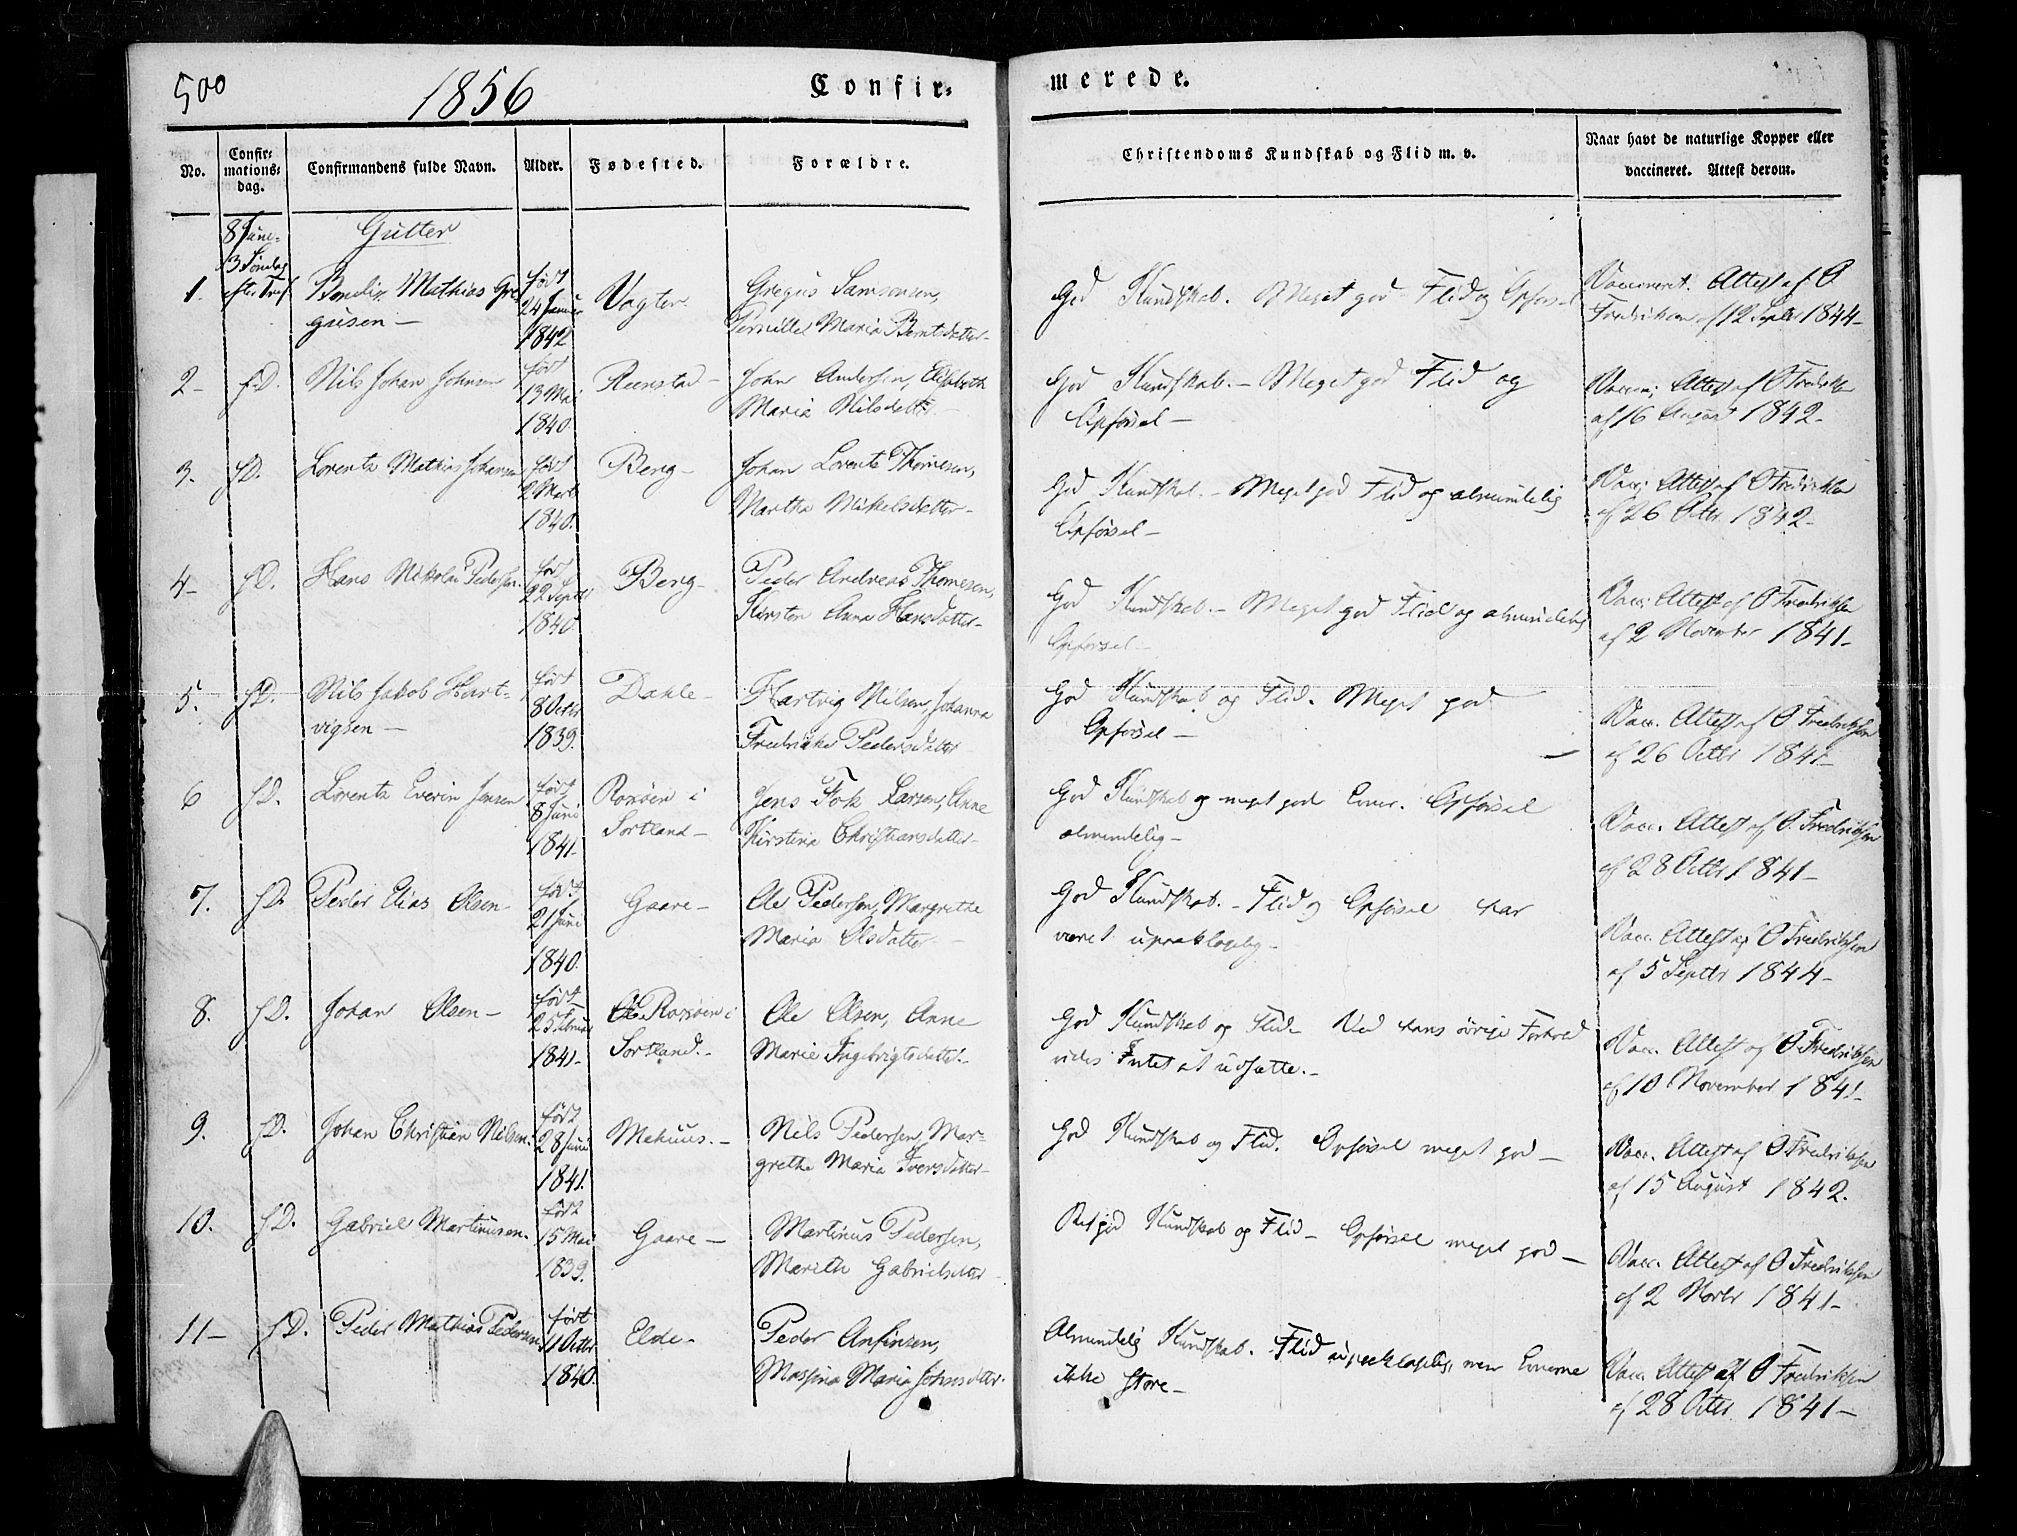 500 1856 Confir= merede.
No. Confir=mations=dag. Confirmandens fulde Navn. Alder. Fødested. Forældre. Christendoms Kundskab og Flid m. v. Naar havt de naturlige Kopper eller vaccineret. Attest derom.
8 Juni
3 Søndag Gutter
1. efter Tref. Bendix Mathias Gre født Vagter Gregus Samsonsen, God Kundskab. Meget god Flid og Opførsel Vaccineret. Attest af O
gusen — 24 Januar Pernille Maria Berntsdatter — Fredriksen af 12 Septbr 1844 —
1842
2 — f.D. Nils Johan Johnsen født Reenstad — John Andersen, Elisabeth God Kundskab. — Meget god Flid og Vacc; Attest af O Fredriksen
13 Mai Maria Nilsdatter — Opførsel — af 16 August 1842 —
1840.
3. f.D. Lorentz Mathias Johansen født Berg — Johan Lorentz Thomesen, God Kundskab. — Meget god Flid og almindelig Vacc; Attest af O Fredriksen
2 Marts Martha Mikelsdatter — Opførsel — af 26 Octbr 1842 —
1840.
4 — f.D. Hans Nikolai Pedersen. født Berg — Peder Andreas Thomesen, God Kundskab. — Meget god Flid og almindelig Vacc; Attest af O Fredriksen
22 Septbr Kirsten Anna Hansdatter — Opførsel — af 2 November 1841 —
1840.
5. f.D. Nils Jakob Hart- født Dahle — Hartvig Nilsen, Johanna God Kundskab og Flid. Meget god Vacc. Attest af O Fredriksen
vigsen — 8 Octbr Fredrikke Pedersdatter Opførsel — af 26 Octbr 1841 —
1839.
6 f.D. Lorentz Everin Jensen født Roxøen i Jens Fok Larsen, Anne God Kundskab og meget gode Evner. Opførsel Vacc. Attest af O. Fredriksen
8 Juni Sortland — Kirstina Christiansdatter — almindelig — af 28 Octbr 1841 —
1841 —
7. f.D. Peder Elias Olsen — født Gaare — Ole Pedersen, Margrethe God Kundskab. — Flid og Opførsel har Vacc. Attest af O Fredriksen
21 Juni Maria Olsdatter — været upaaklagelig — af 5 Septbr 1844 —
1840.
8. f.D. Johan Olsen — født Roxøen i Ole Olsen, Anne God Kundskab og Flid — Ved hans øvrige Forhold Vacc. Attest af O Fredriksen
25 Februar Sortland. — Marie Ingebrigtsdatter. — vides Intet at udsætte. — af 10 November 1841 —
1841 —
9. f.D. Johan Christian Nilsen. født Mehuus. — Nils Pedersen, Mar- God Kundskab og Flid. Opførsel meget god — Vacc. Attest af O Fredriksen
28 Juni grethe Maria Iversdatter — af 15 August 1842.
1841.
10. f.D. Gabriel Martinusen. født Gaare — Martinus Pedersen, Retgod Kundskab og Flid — Opførsel meget god — Vacc. Attest af O Fredriksen
15 Mai Marith Gabrielsdatter — af 2 Novbr 1841 —
1839.
11 — f.D. Peder Mathias Pedersen født Elde — Peder Anfinsen, Almindelig Kundskab. Flid upaaklagelig, men Evnerne Vacc. Attest af O Fredriksen
11 Octbr Massina Maria Johnsdatter. ikke store — af 28 Octbr 1841 —
1840.